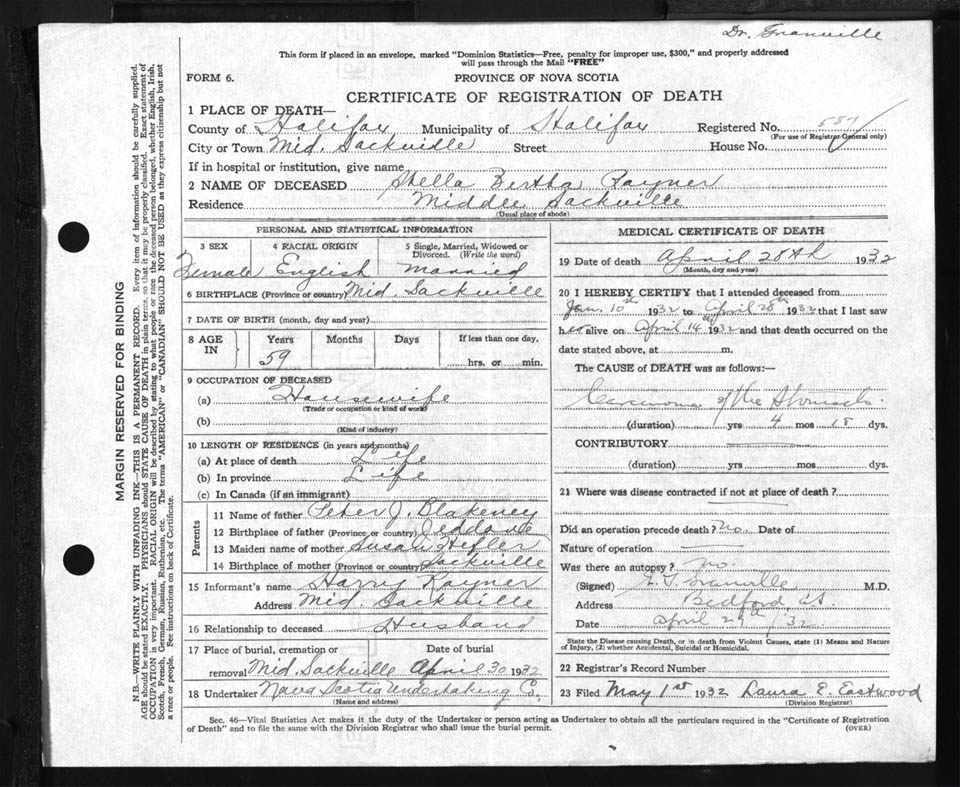 Dr. Granville
This form if placed in an envelope, marked "Dominion Statistics—Free, penalty for improper use, $300," and properly addressed
will pass through the Mail "FREE"
FORM 6.
PROVINCE OF NOVA SCOTIA
CERTIFICATE OF REGISTRATION OF DEATH
1 PLACE OF DEATH—
County of Halifax Municipality of Halifax Registered No. 587
(For use of Registrar General only)
City or Town Mid. Sackville Street House No.
If in hospital or institution, give name
2 NAME OF DECEASED Stella Bertha Rayner
Residence Middle Sackville
(Usual place of abode)
PERSONAL AND STATISTICAL INFORMATION
3 SEX 4 RACIAL ORIGIN 5 Single, Married, Widowed or
Divorced. (Write the word)
Female English Married
6 BIRTHPLACE (Province or country) Mid. Sackville
7 DATE OF BIRTH (month, day and year)
8 AGE IN Years Months Days If less than one day,
59 hrs. or min.
9 OCCUPATION OF DECEASED
(a) Housewife
(Trade or occupation or kind of work)
(b)
(Kind of industry)
10 LENGTH OF RESIDENCE (in years and months)
(a) At place of death Life
(b) In province Life
(c) In Canada (if an immigrant)
Parents
11 Name of father Peter J. Blakeney
12 Birthplace of father (Province or country)
13 Maiden name of mother Susan Hefler
14 Birthplace of mother (Province or country) Sackville
15 Informant's name Harry Rayner
Address Mid. Sackville
16 Relationship to deceased Husband
17 Place of burial, cremation or Date of burial
removal Mid. Sackville April 30 1932
18 Undertaker Nova Scotia Undertaking Co.
(Name and address)
MEDICAL CERTIFICATE OF DEATH
19 Date of death April 28th 1932
(Month, day and year)
20 I HEREBY CERTIFY that I attended deceased from
Jan. 10th 1932 to April 28th 1932 that I last saw
her alive on April 14th 1932 and that death occurred on the
date stated above, at m.
The CAUSE of DEATH was as follows:—
Carcinoma of the Stomach.
(duration) yrs 4 mos 18 dys.
CONTRIBUTORY
(duration) yrs mos dys.
21 Where was disease contracted if not at place of death?
Did an operation precede death? No. Date of
Nature of operation
Was there an autopsy? No.
(Signed) Granville M.D.
Address Bedford,
Date April 29th/32
State the Disease causing Death, or in death from Violent Causes, state (1) Means and Nature
of Injury, (2) whether Accidental, Suicidal or Homicidal.
22 Registrar's Record Number
23 Filed May 1st 1932 Laura E. Eastwood
(Division Registrar)
Sec. 46—Vital Statistics Act makes it the duty of the Undertaker or person acting as Undertaker to obtain all the particulars required in the "Certificate of Registration
of Death" and to file the same with the Division Registrar who shall issue the burial permit. (OVER)
MARGIN RESERVED FOR BINDING
N.B.—WRITE PLAINLY WITH UNFADING INK—THIS IS A PERMANENT RECORD. Every item of information should be carefully supplied.
AGE should be stated EXACTLY. PHYSICIANS should STATE CAUSE OF DEATH in plain terms so that it may be properly classified. Exact statement of
OCCUPATION is very important. RACIAL ORIGIN will be described by stating to what people or race the deceased person belonged, whether English, Irish,
Scotch, French, German, Russian, Ruthenian, etc. The terms "AMERICAN" or "CANADIAN" SHOULD NOT BE USED as they express citizenship but not
a race or people. See instructions on back of Certificate.